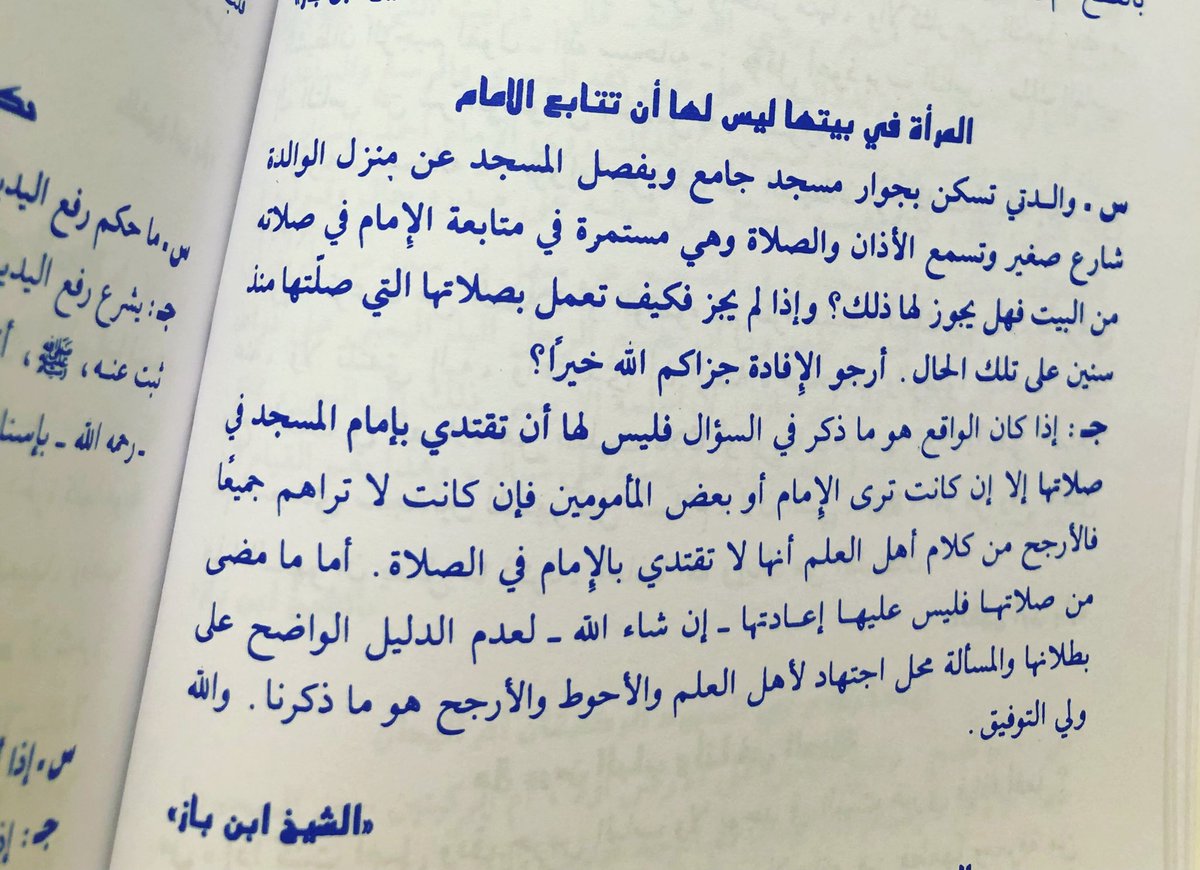 المرأة في بيتها ليس لها أن تتابع الامام
س . والـدتي تسكن بجوار مسجد جامع ويفصل المسجد عن منزل الوالدة
شارع صغير وتسمع الأذان والصلاة وهي مستمرة في متابعة الإِمام في صلاته
من البيت فهل يجوز لها ذلك؟ وإذا لم يجز فكيف تعمل بصلاتها التي صلّتها منذ
سنين على تلك الحال . أرجو الإِفادة جزاكم الله خيرًا؟
جـ : إذا كان الواقع هو ما ذكر في السؤال فليس لها أن تقتدي بإمام المسجد في
صلاتها إلا إن كانت ترى الإِمام أو بعض المأمومين فإن كانت لا تراهم جميعًا
فالأرجح من كلام أهل العلم أنها لا تقتدي بالإِمام في الصلاة . أما ما مضى
من صلاتهـا فليس عليهـا إعـادتها ـ إن شاء الله ـ لعدم الدليل الواضح على
بطلانها والمسألة محل اجتهاد لأهل العلم والأحوط والأرجح هو ما ذكرنا . والله
ولي التوفيق .
«الشيخ ابن باز»
س . ما حكم رفع
جـ : يشرع رفع
ثبت عنـه ، ﷺ ،
ـ رحمه الله ـ
س . إذا
جـ :